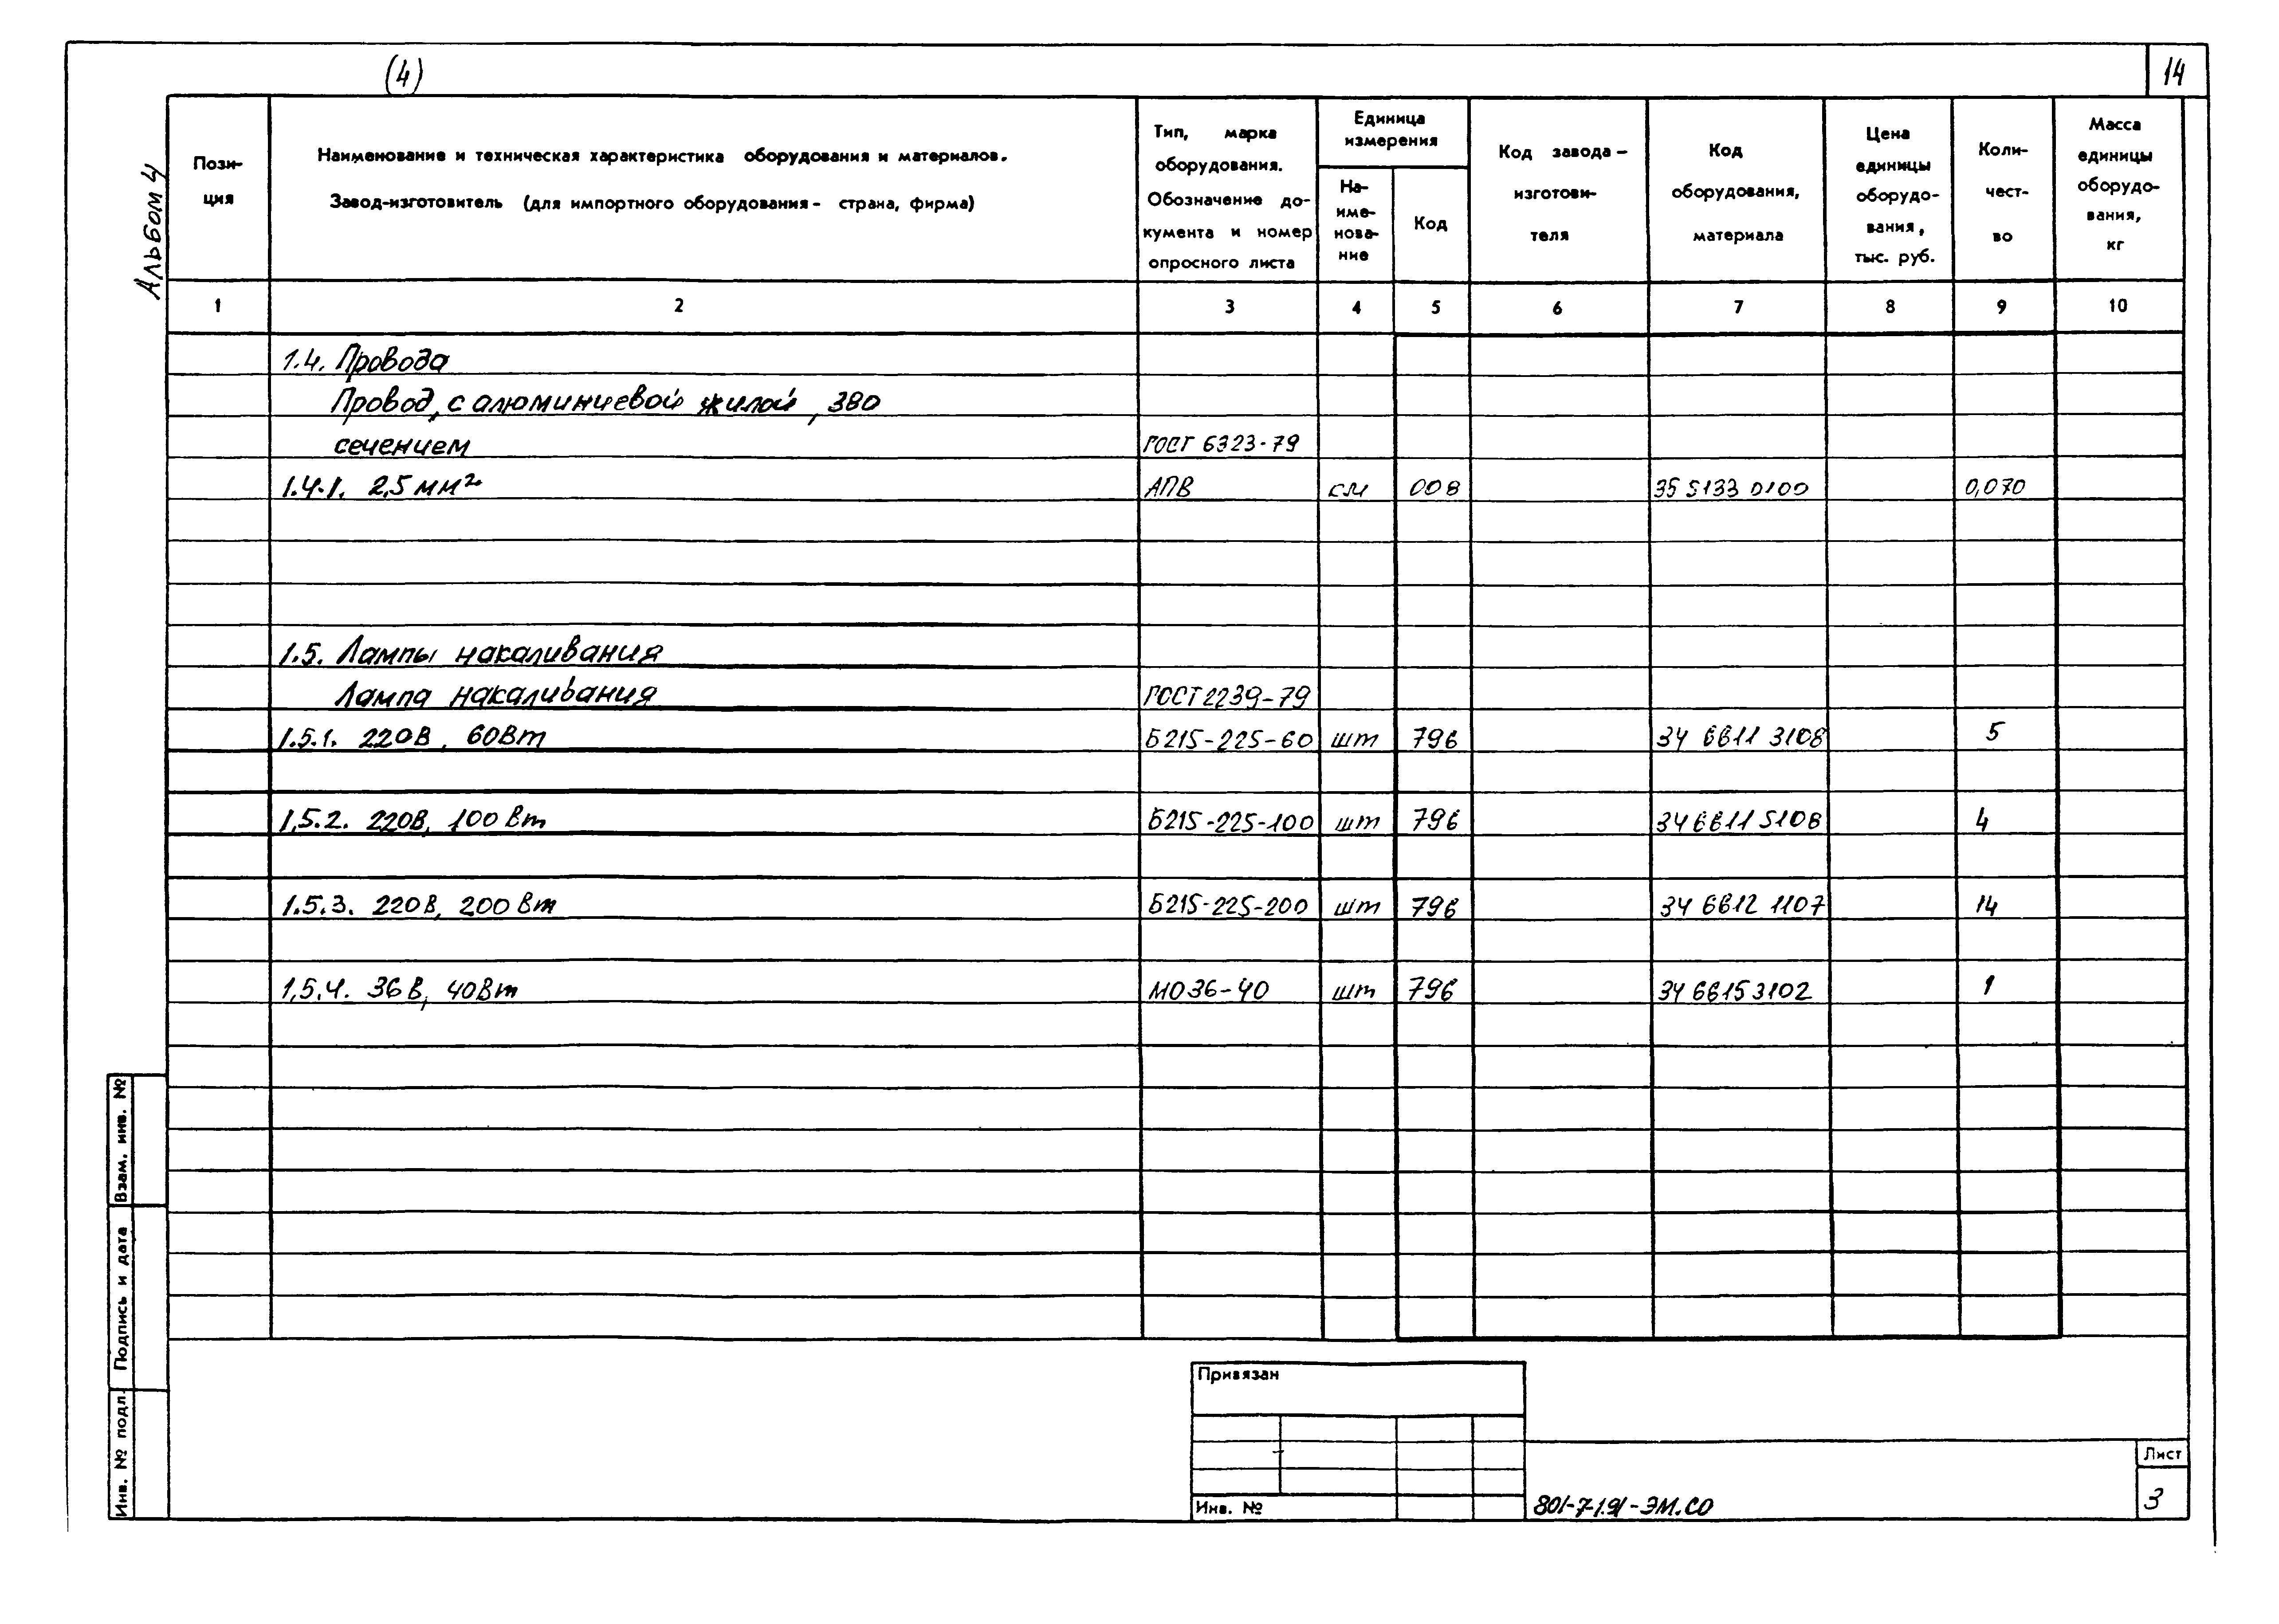 (4)
14
Альбом 4
Пози-
ция
Наименование и техническая характеристика оборудования и материалов.
Завод-изготовитель (для импортного оборудования - страна, фирма)
Тип, марка
оборудования.
Обозначение до-
кумента и номер
опросного листа
Единица
измерения
На-
име-
нова-
ние
Код
Код завода -
изготови-
теля
Код
оборудования,
материала
Цена
единицы
оборудо-
вания,
тыс. руб.
Коли-
чест-
во
Масса
единицы
оборудо-
вания,
кг
1 2 3 4 5 6 7 8 9 10
1.4. Провода
Провод, с алюминиевой жилой, 380
сечением ГОСТ 6323-79
1.4.1. 2,5 мм² АПВ км 008 35 5133 0100 0,070
1.5. Лампы накаливания
Лампа накаливания ГОСТ 2239-79
1.5.1. 220В, 60Вт Б215-225-60 шт 796 34 6611 3108 5
1.5.2. 220В, 100Вт Б215-225-100 шт 796 34 6611 5108 4
1.5.3. 220В, 200Вт Б215-225-200 шт 796 34 6612 1107 14
1.5.4. 36В, 40Вт МО36-40 шт 796 34 6615 3102 1
Взам. инв. №
Подпись и дата
Инв. № подл.
Привязан
Инв. №
801-7-1.91-ЭМ.СО
Лист
3